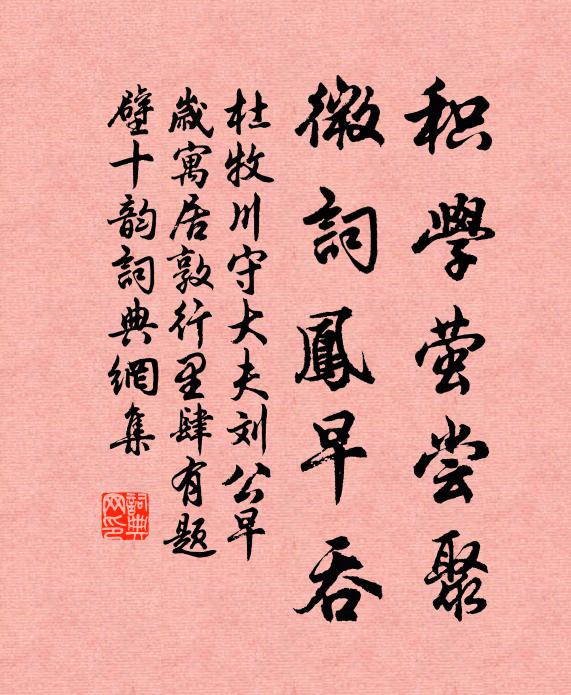 积學萤尝聚
微詞鳳早吞
杜牧川守大夫刘公早
歲寓居敦行里肆有题
壁十韵詞典網集
詞典
网印